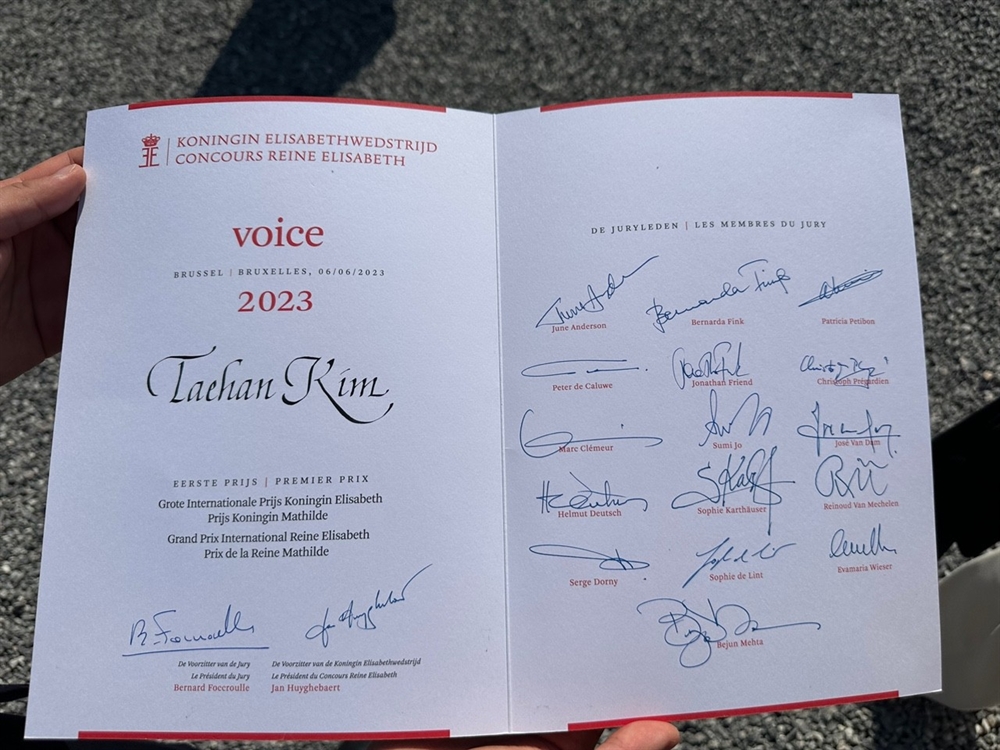 KONINGIN ELISABETHWEDSTRIJD
CONCOURS REINE ELISABETH
voice
BRUSSEL | BRUXELLES, 06/06/2023
2023
Taehan Kim
EERSTE PRIJS | PREMIER PRIX
Grote Internationale Prijs Koningin Elisabeth
Prijs Koningin Mathilde
Grand Prix International Reine Elisabeth
Prix de la Reine Mathilde
B. Foccroulle
De Voorzitter van de Jury
Le Président du Jury
Bernard Foccroulle
Jan Huyghebaert
De Voorzitter van de Koningin Elisabethwedstrijd
Le Président du Concours Reine Elisabeth
Jan Huyghebaert
DE JURYLEDEN | LES MEMBRES DU JURY
June Anderson
Bernarda Fink
June Anderson
Bernarda Fink
Patricia Petibon
Peter de Caluwe
Jonathan Friend
Christoph Prégardien
Marc Clémeur
Sumi Jo
José Van Dam
Helmut Deutsch
Sophie Karthäuser
Reinoud Van Mechelen
Serge Dorny
Sophie de Lint
Evamaria Wieser
Bejun Mehta